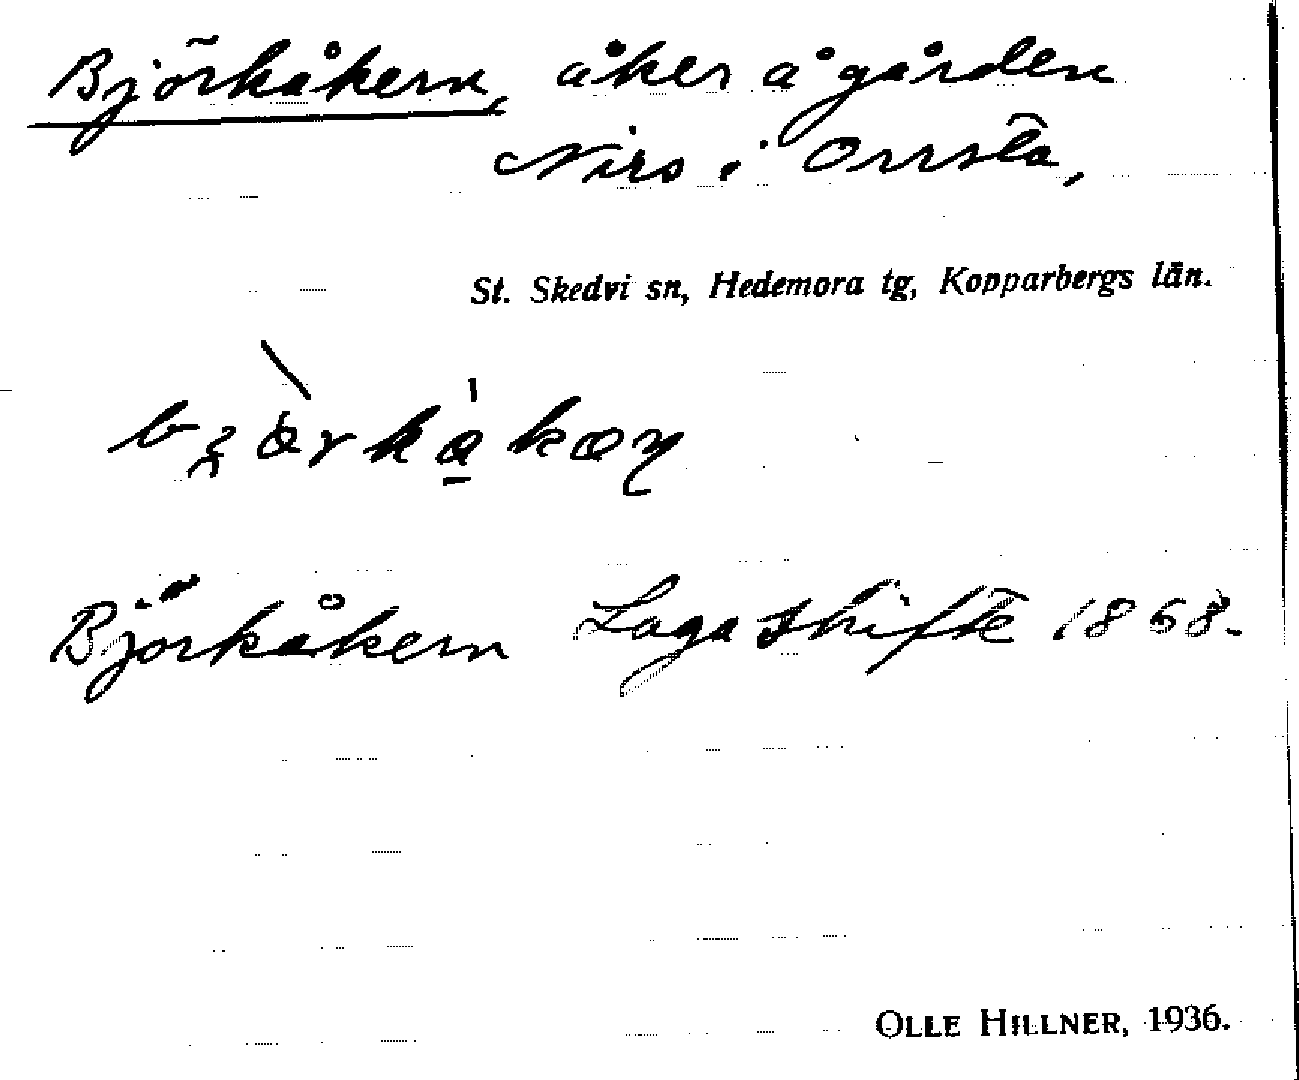 Björkåkern, åker å gården
Nirs i Orrsta,
St. Skedvi sn, Hedemora tg, Kopparbergs län.
Björkåkern Laga skifte 1868.
OLLE HILLNER, 1936.